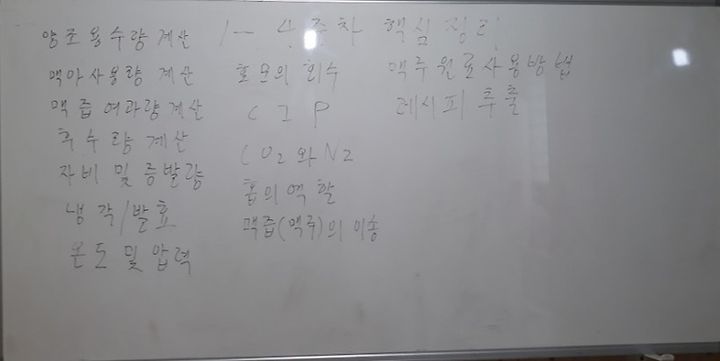 1-4주차 핵심정리
양조용수량 계산
맥아사용량 계산
맥즙여과량계산
후수량 계산
자비 및 증발량
냉각/발효
온도 및 압력
효모의 회수
CIP
CO2와 N2
홉의역할
맥즙(맥주)의 이송
맥주원료사용방법
레시피 추출